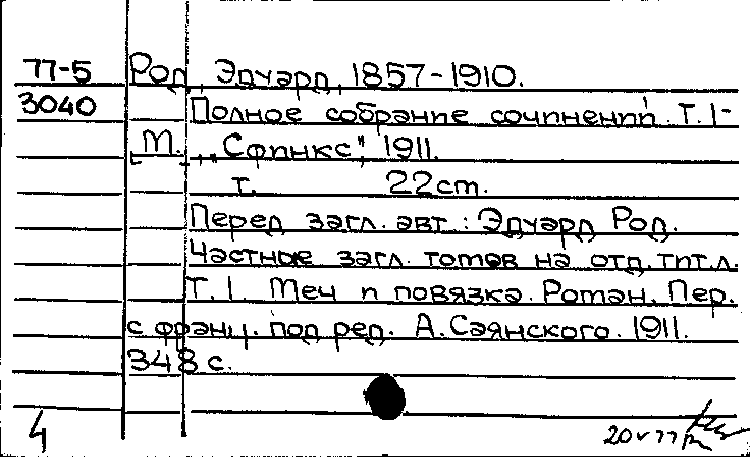 77-5 Род, Эдуард, 1857-1910.
3040 Полное собрание сочинений. Т. 1-
М. „Сфинкс", 1911.
т. 22 cm.
Перед загл. авт.: Эдуард Род.
Частные загл. томов на отд. тит. л.
Т. 1. Меч и повязка. Роман. Пер.
с франц. под ред. А. Саянского. 1911.
348 с.
4
20 V 77